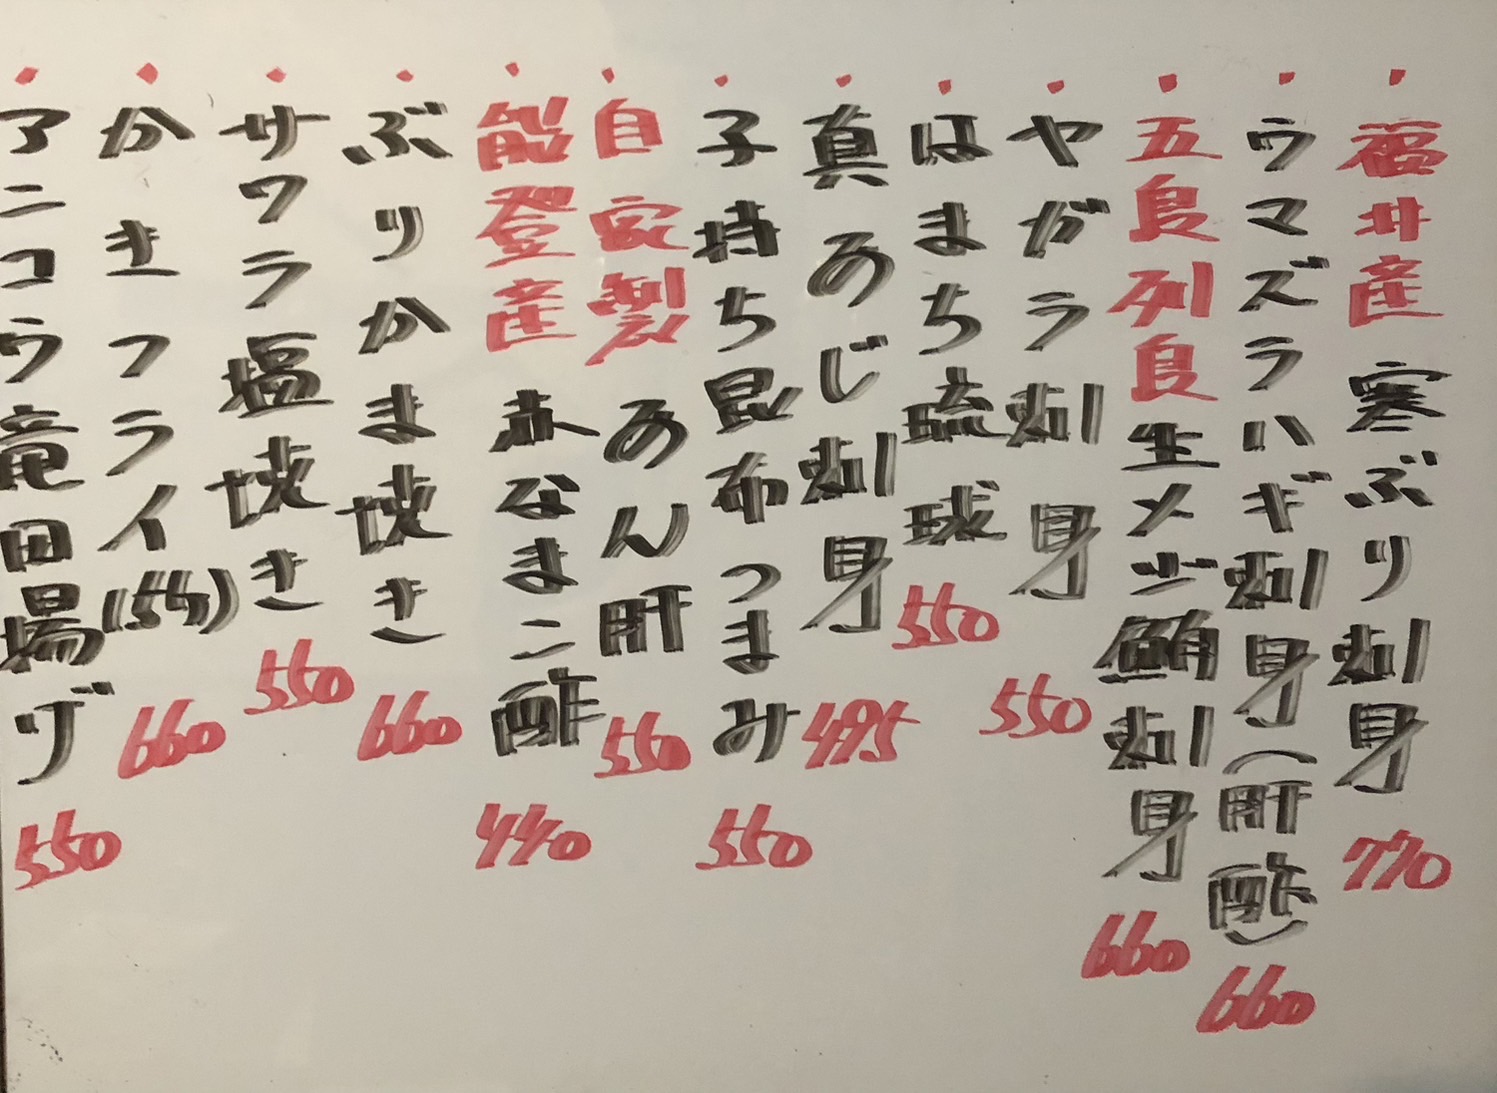 ・福井産 寒ぶり刺身 770
・ウマズラハギ刺身(肝酢) 660
・五島列島生メジ鮪刺身 660
・ヤガラ刺身 550
・はまち琉球 550
・真あじ刺身 495
・子持ち昆布つまみ 550
・自家製 あん肝 550
・能登産 赤なまこ酢 440
・ぶりかま焼き 660
・サワラ塩焼き 550
・かきフライ(5ケ) 660
・アンコウ竜田揚げ 550